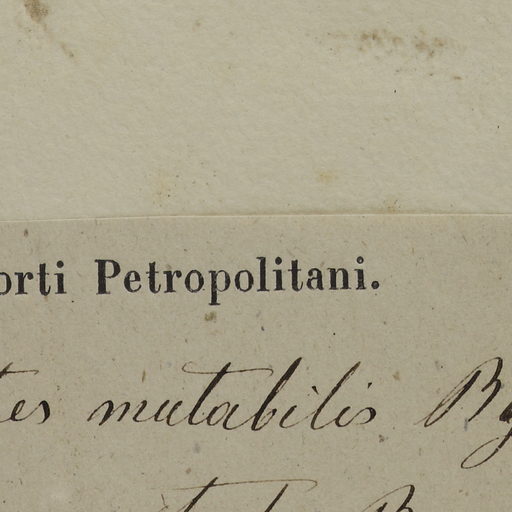 orti Petropolitani.
tes mutabilis Bg